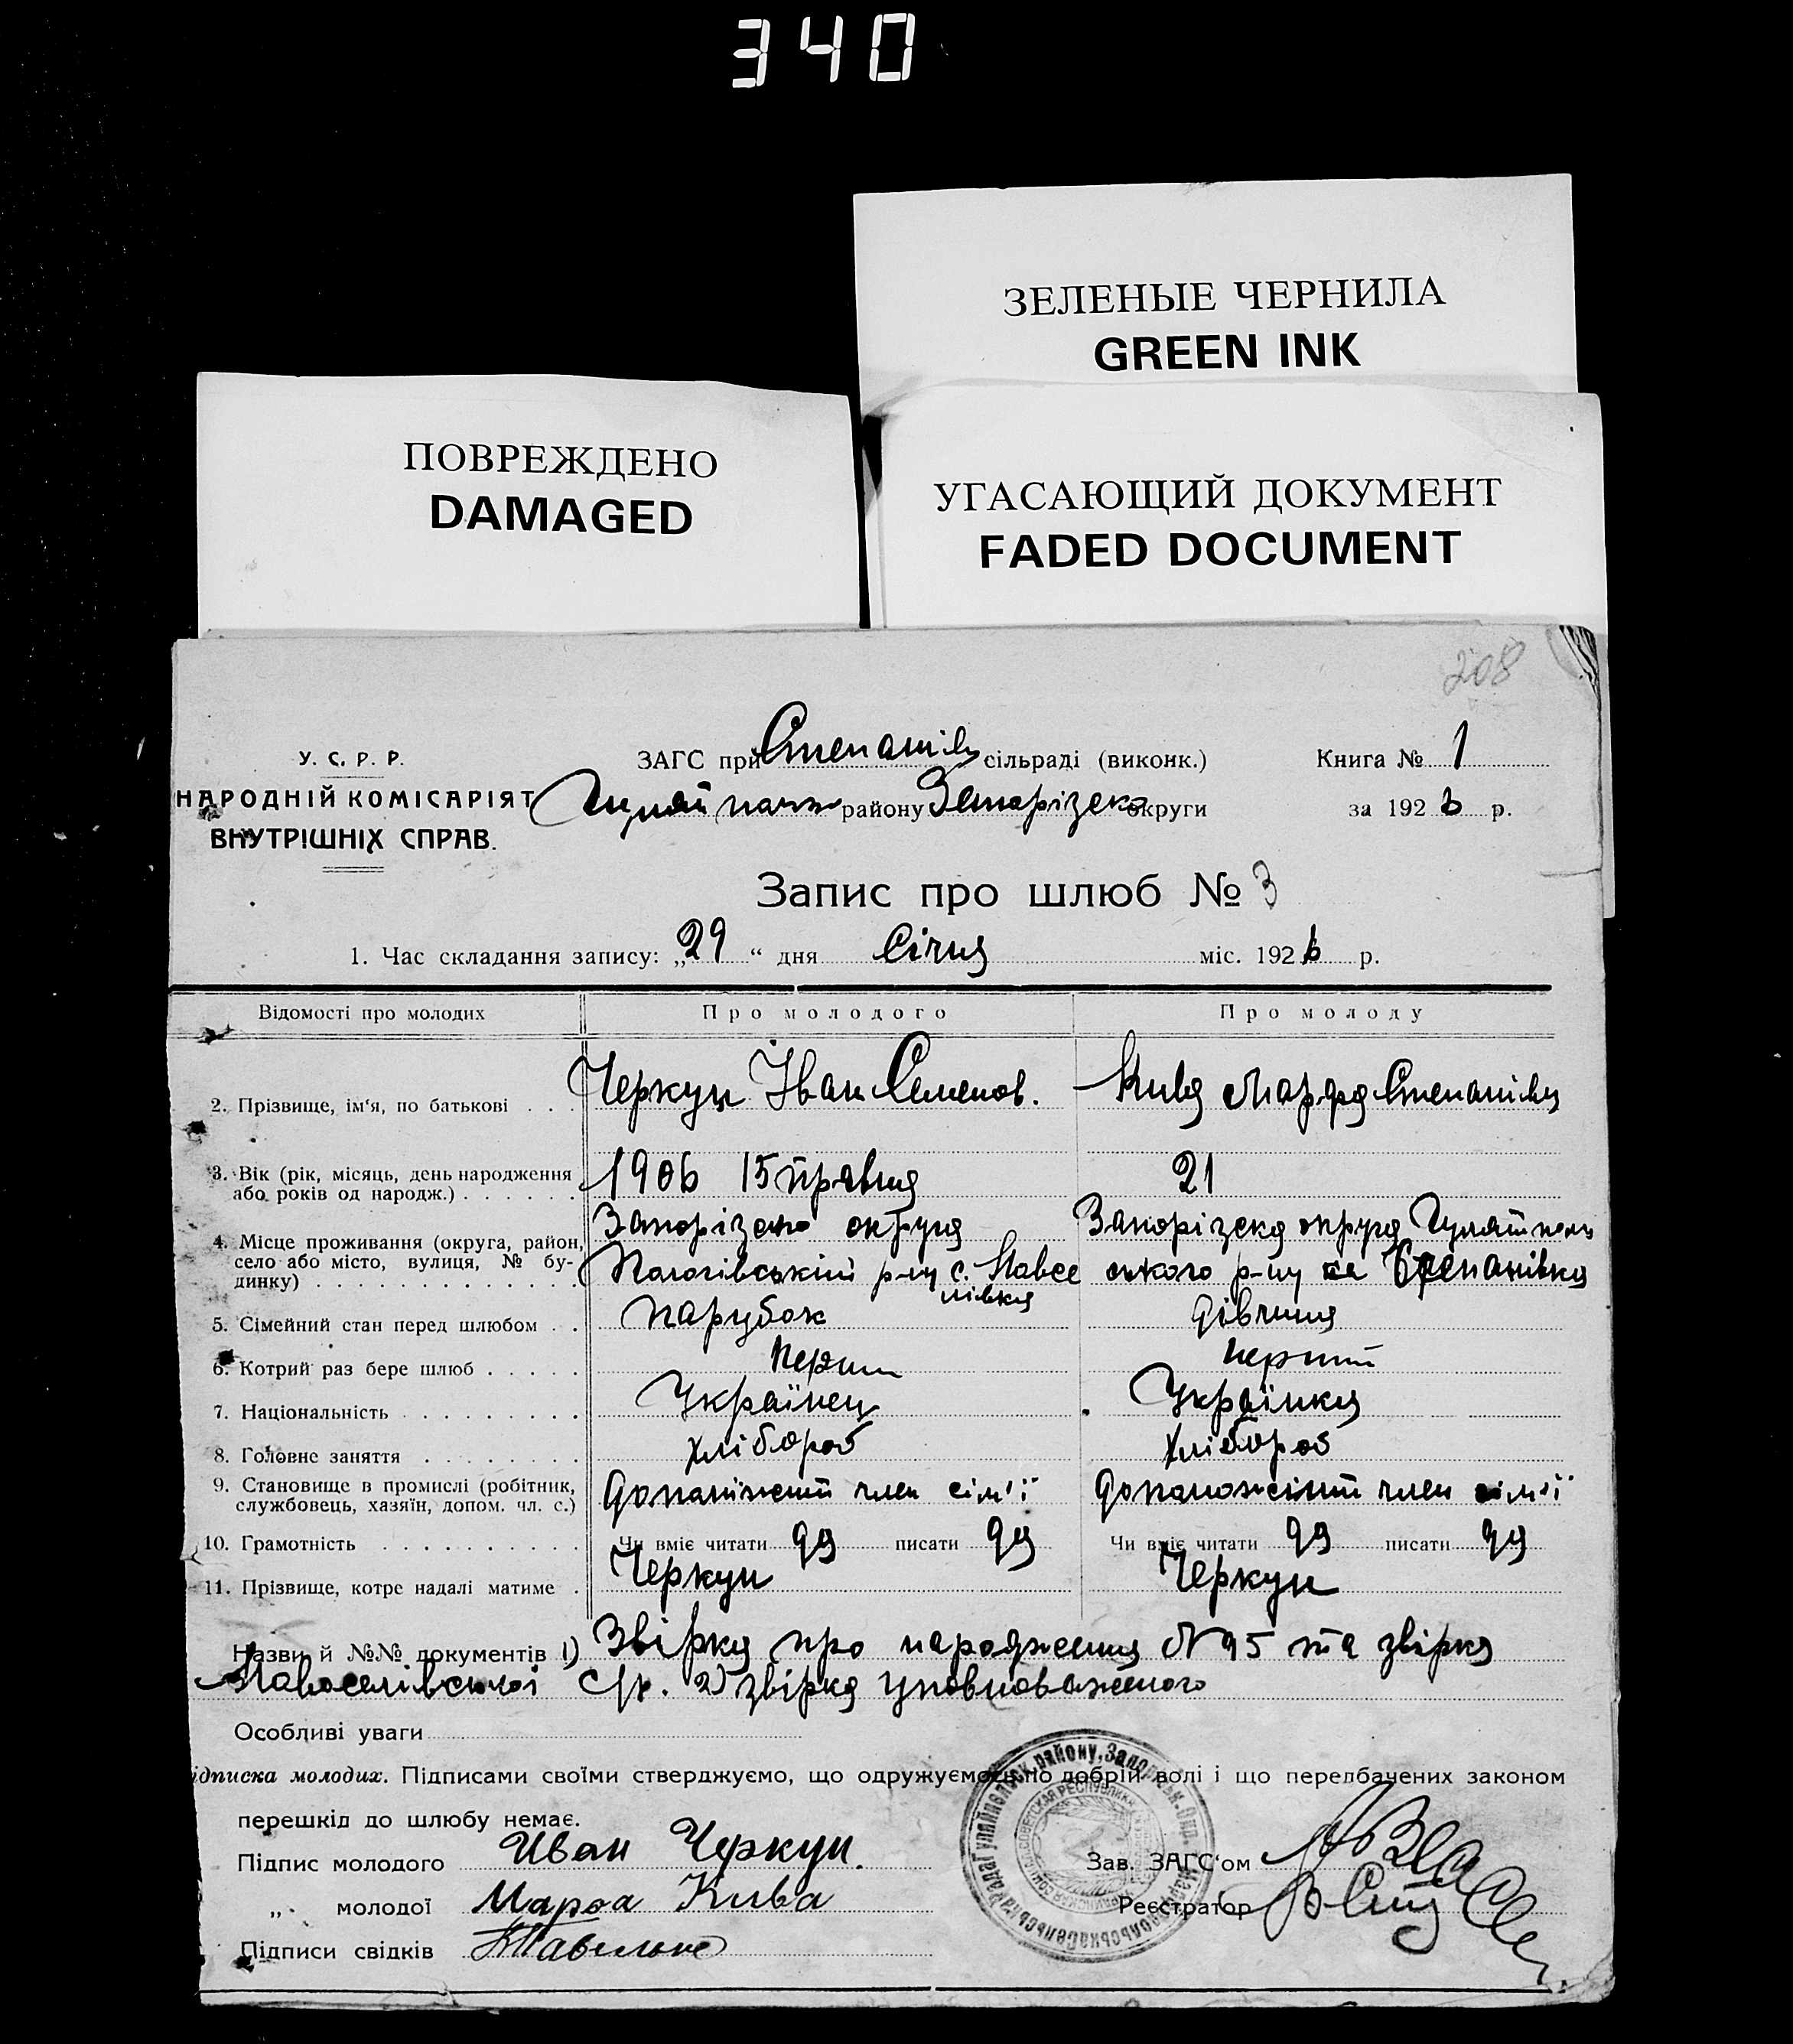 340
ЗЕЛЕНЫЕ ЧЕРНИЛА
GREEN INK
ПОВРЕЖДЕНО
DAMAGED
УГАСАЮЩИЙ ДОКУМЕНТ
FADED DOCUMENT
208
У. С. Р. Р.
НАРОДНІЙ КОМІСАРІЯТ
ВНУТРІШНІХ СПРАВ.
ЗАГС при Степанів сільраді (виконк.)
району Запорізька округи
Книга № 1
за 1926 р.
Запис про шлюб № 3
1. Час складання запису: „29“ дня Січня міс. 1926 р.
Відомості про молодих
Про молодого
Про молоду
2. Прізвище, ім'я, по батькові . . .
Черкун Іван Семенов.
Кива Марфа Степанівна
3. Вік (рік, місяць, день народження
або років од народж.) . . . . . .
1906 15 травня
21
4. Місце проживання (округа, район,
село або місто, вулиця, № бу-
динку) . . . . . . . . . . . . .
Запорізька округа
Пологівський р-ну с. Новсе
лівка
Запорізька округа Гуляйполь
ського р-ну Степанівка
5. Сімейний стан перед шлюбом . .
парубок
дівчина
6. Котрий раз бере шлюб . . . . .
перший
перший
7. Національність . . . . . . . . .
Українець
Українка
8. Головне заняття . . . . . . . .
хлібороб
хлібороб
9. Становище в промислі (робітник,
службовець, хазяїн, допом. чл. с.)
член сім'ї
член сім'ї
10. Грамотність . . . . . . . . . .
Чи вміє читати да писати да
Чи вміє читати да писати да
11. Прізвище, котре надалі матиме .
Черкун
Черкун
Назви й №№ документів 1) Звірка про народження N 95 та звірка
Новоселівської с/р. 2) звірка уповноваженого
Особливі уваги
ідписка молодих. Підписами своїми стверджуємо, що одружуємось по добрій волі і що передбачених законом
перешкід до шлюбу немає.
Підпис молодого Иван Черкун.
„ молодої Марфа Кива
Підписи свідків
Зав. ЗАГС'ом
Реєстратор